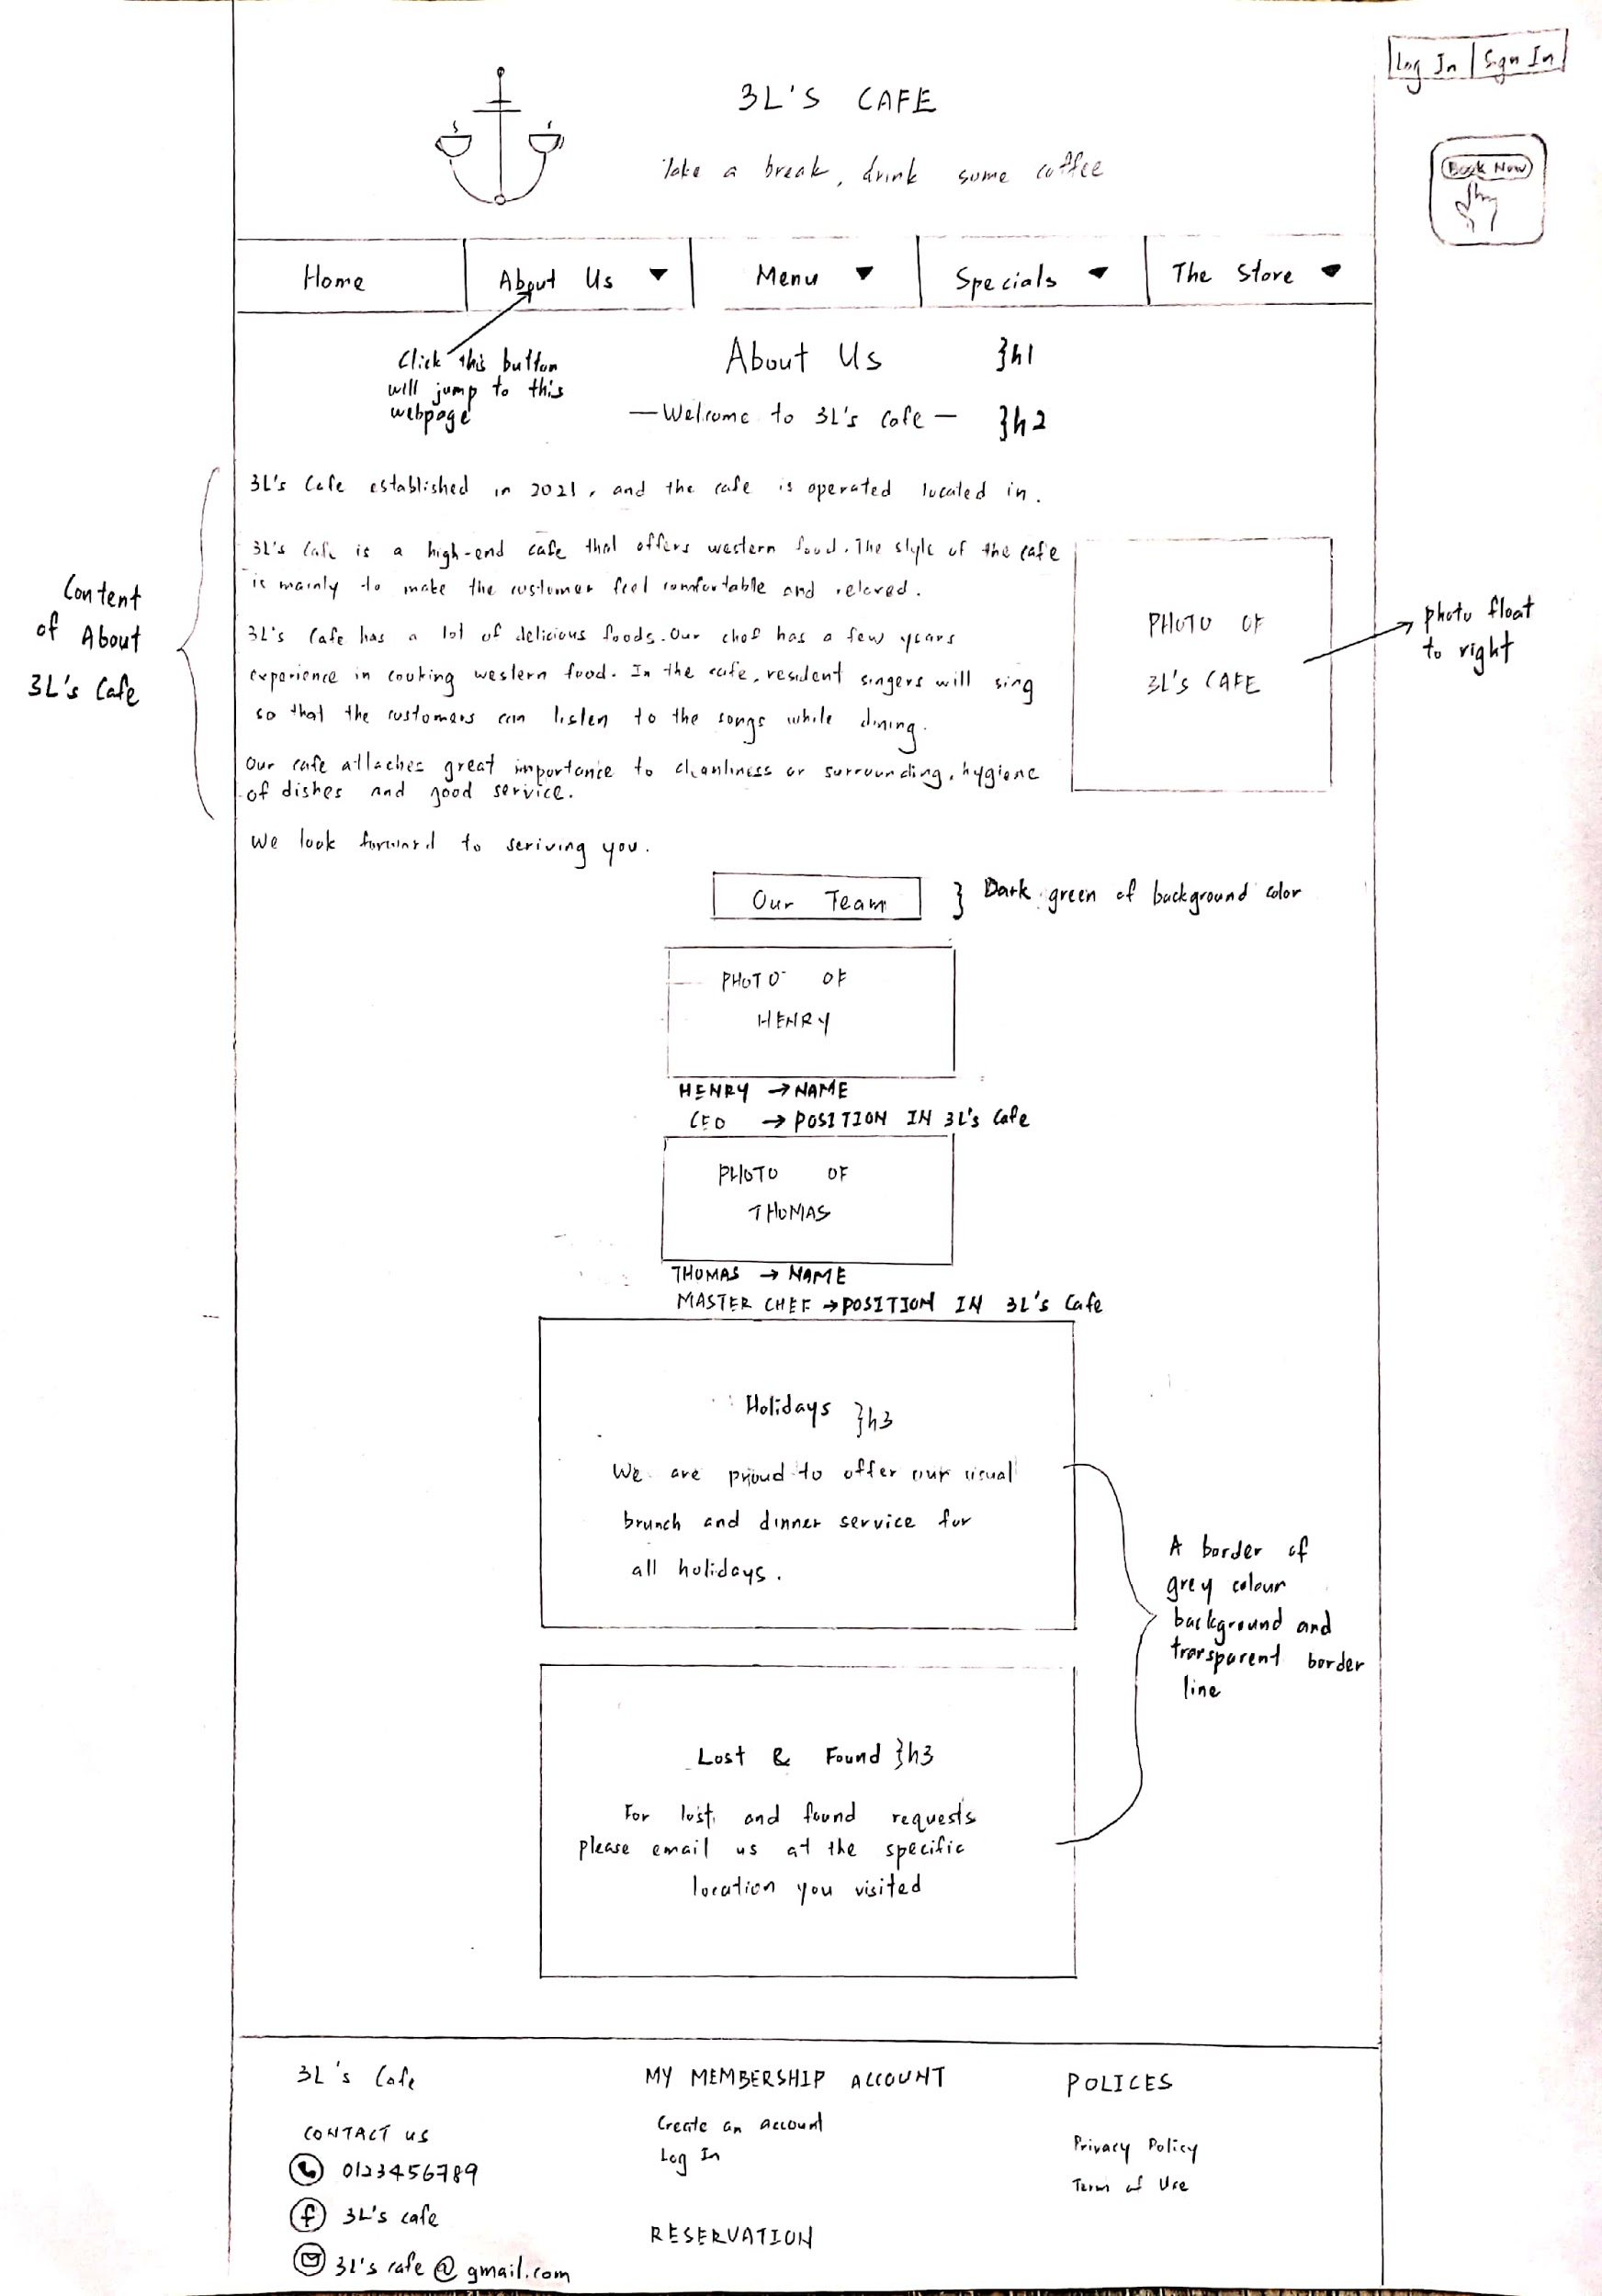 Log In | Sign In
3L'S CAFE
Take a break, drink some coffee
Book Now
Home
About Us
Menu
Specials
The Store
Click this button
will jump to this
webpage
About Us }h1
—Welcome to 3L's Cafe— }h2
3L's Cafe established in 2021, and the cafe is operated located in.
3L's Cafe is a high-end cafe that offers western food. The style of the cafe
is mainly to make the customer feel comfortable and relaxed.
3L's Cafe has a lot of delicious foods. Our chef has a few years
experience in cooking western food. In the cafe, resident singers will sing
so that the customers can listen to the songs while dining.
Our cafe attaches great importance to cleanliness or surrounding, hygiene
of dishes and good service.
We look forward to seriving you.
Content
of About
3L's Cafe
PHOTO OF
3L'S CAFE
photo float
to right
Our Team } Dark green of background color
PHOTO OF
HENRY
HENRY → NAME
CEO → POSITION IN 3L's Cafe
PHOTO OF
THOMAS
THOMAS → NAME
MASTER CHEF → POSITION IN 3L's Cafe
Holidays }h3
We are proud to offer our usual
brunch and dinner service for
all holidays.
A border of
grey colour
background and
transparent border
line
Lost & Found }h3
For lost and found requests
please email us at the specific
location you visited
3L's Cafe
CONTACT US
0123456789
3L's cafe
3L's cafe@gmail.com
MY MEMBERSHIP ACCOUNT
Create an account
Log In
RESERVATION
POLICES
Privacy Policy
Term of Use